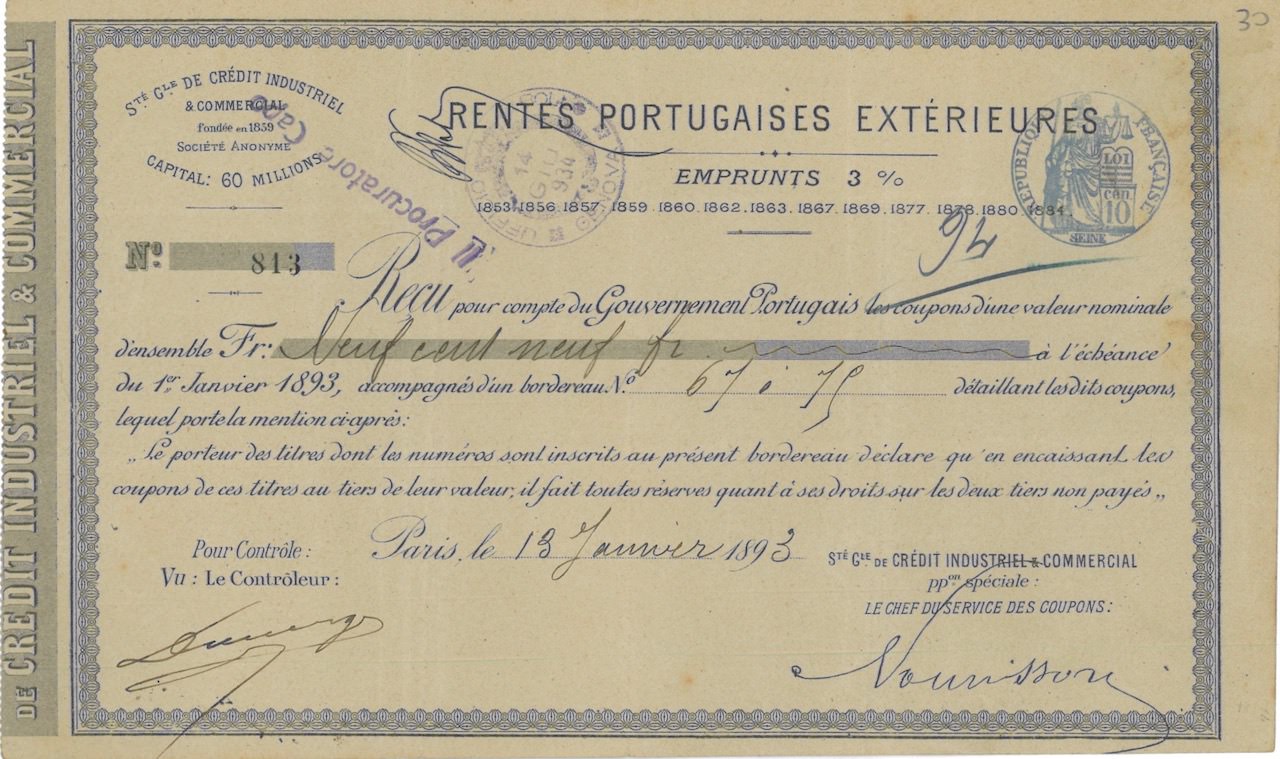 30
DE CRÉDIT INDUSTRIEL & COMMERCIAL
STÉ GLE DE CRÉDIT INDUSTRIEL
& COMMERCIAL
Fondée en 1859
SOCIÉTÉ ANONYME
CAPITAL: 60 MILLIONS
Il Procuratore Capo
GENOVA
14 GIU 934
RENTES PORTUGAISES EXTÉRIEURES
EMPRUNTS 3 %
1853. 1856. 1857. 1859. 1860. 1862. 1863. 1867. 1869. 1877. 1878. 1880. 1884.
RÉPUBLIQUE FRANÇAISE
LOI
cen. 10
SEINE
94
No. 813
Reçu pour compte du Gouvernement Portugais les coupons d'une valeur nominale
d'ensemble Fr: Neuf cent neuf fr. à l'échéance
du 1er Janvier 1893, accompagnés d'un bordereau No 67 à 75 détaillant les dits coupons,
lequel porte la mention ci-après:
„Le porteur des titres dont les numéros sont inscrits au présent bordereau déclare qu'en encaissant les
coupons de ces titres au tiers de leur valeur, il fait toutes réserves quant à ses droits sur les deux tiers non payés„
Paris, le 13 Janvier 1893
Pour Contrôle:
Vu: Le Contrôleur:
STÉ GLE DE CRÉDIT INDUSTRIEL & COMMERCIAL
ppon spéciale:
LE CHEF DU SERVICE DES COUPONS:
Nourisson